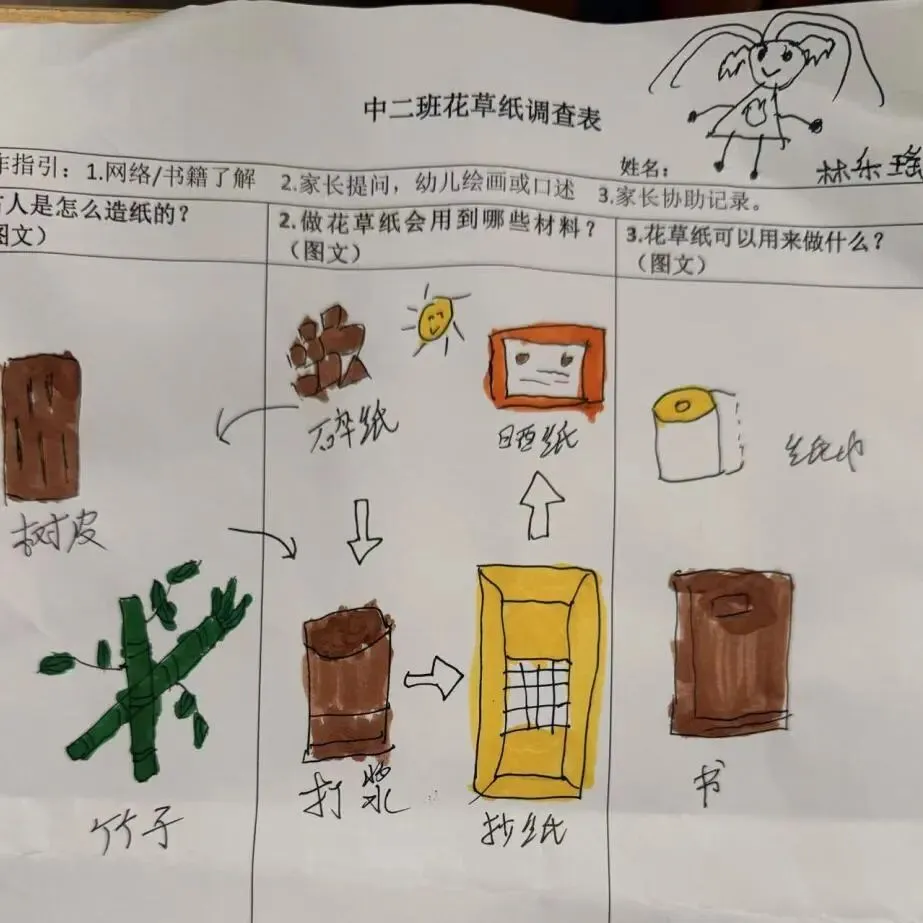 中二班花草纸调查表
姓名：
林乐瑶
作指引：1.网络/书籍了解 2.家长提问，幼儿绘画或口述 3.家长协助记录。
古人是怎么造纸的？
图文）
树皮
竹子
2.做花草纸会用到哪些材料？
（图文）
碎纸
晒纸
打浆
抄纸
3.花草纸可以用来做什么？
（图文）
纸巾
书